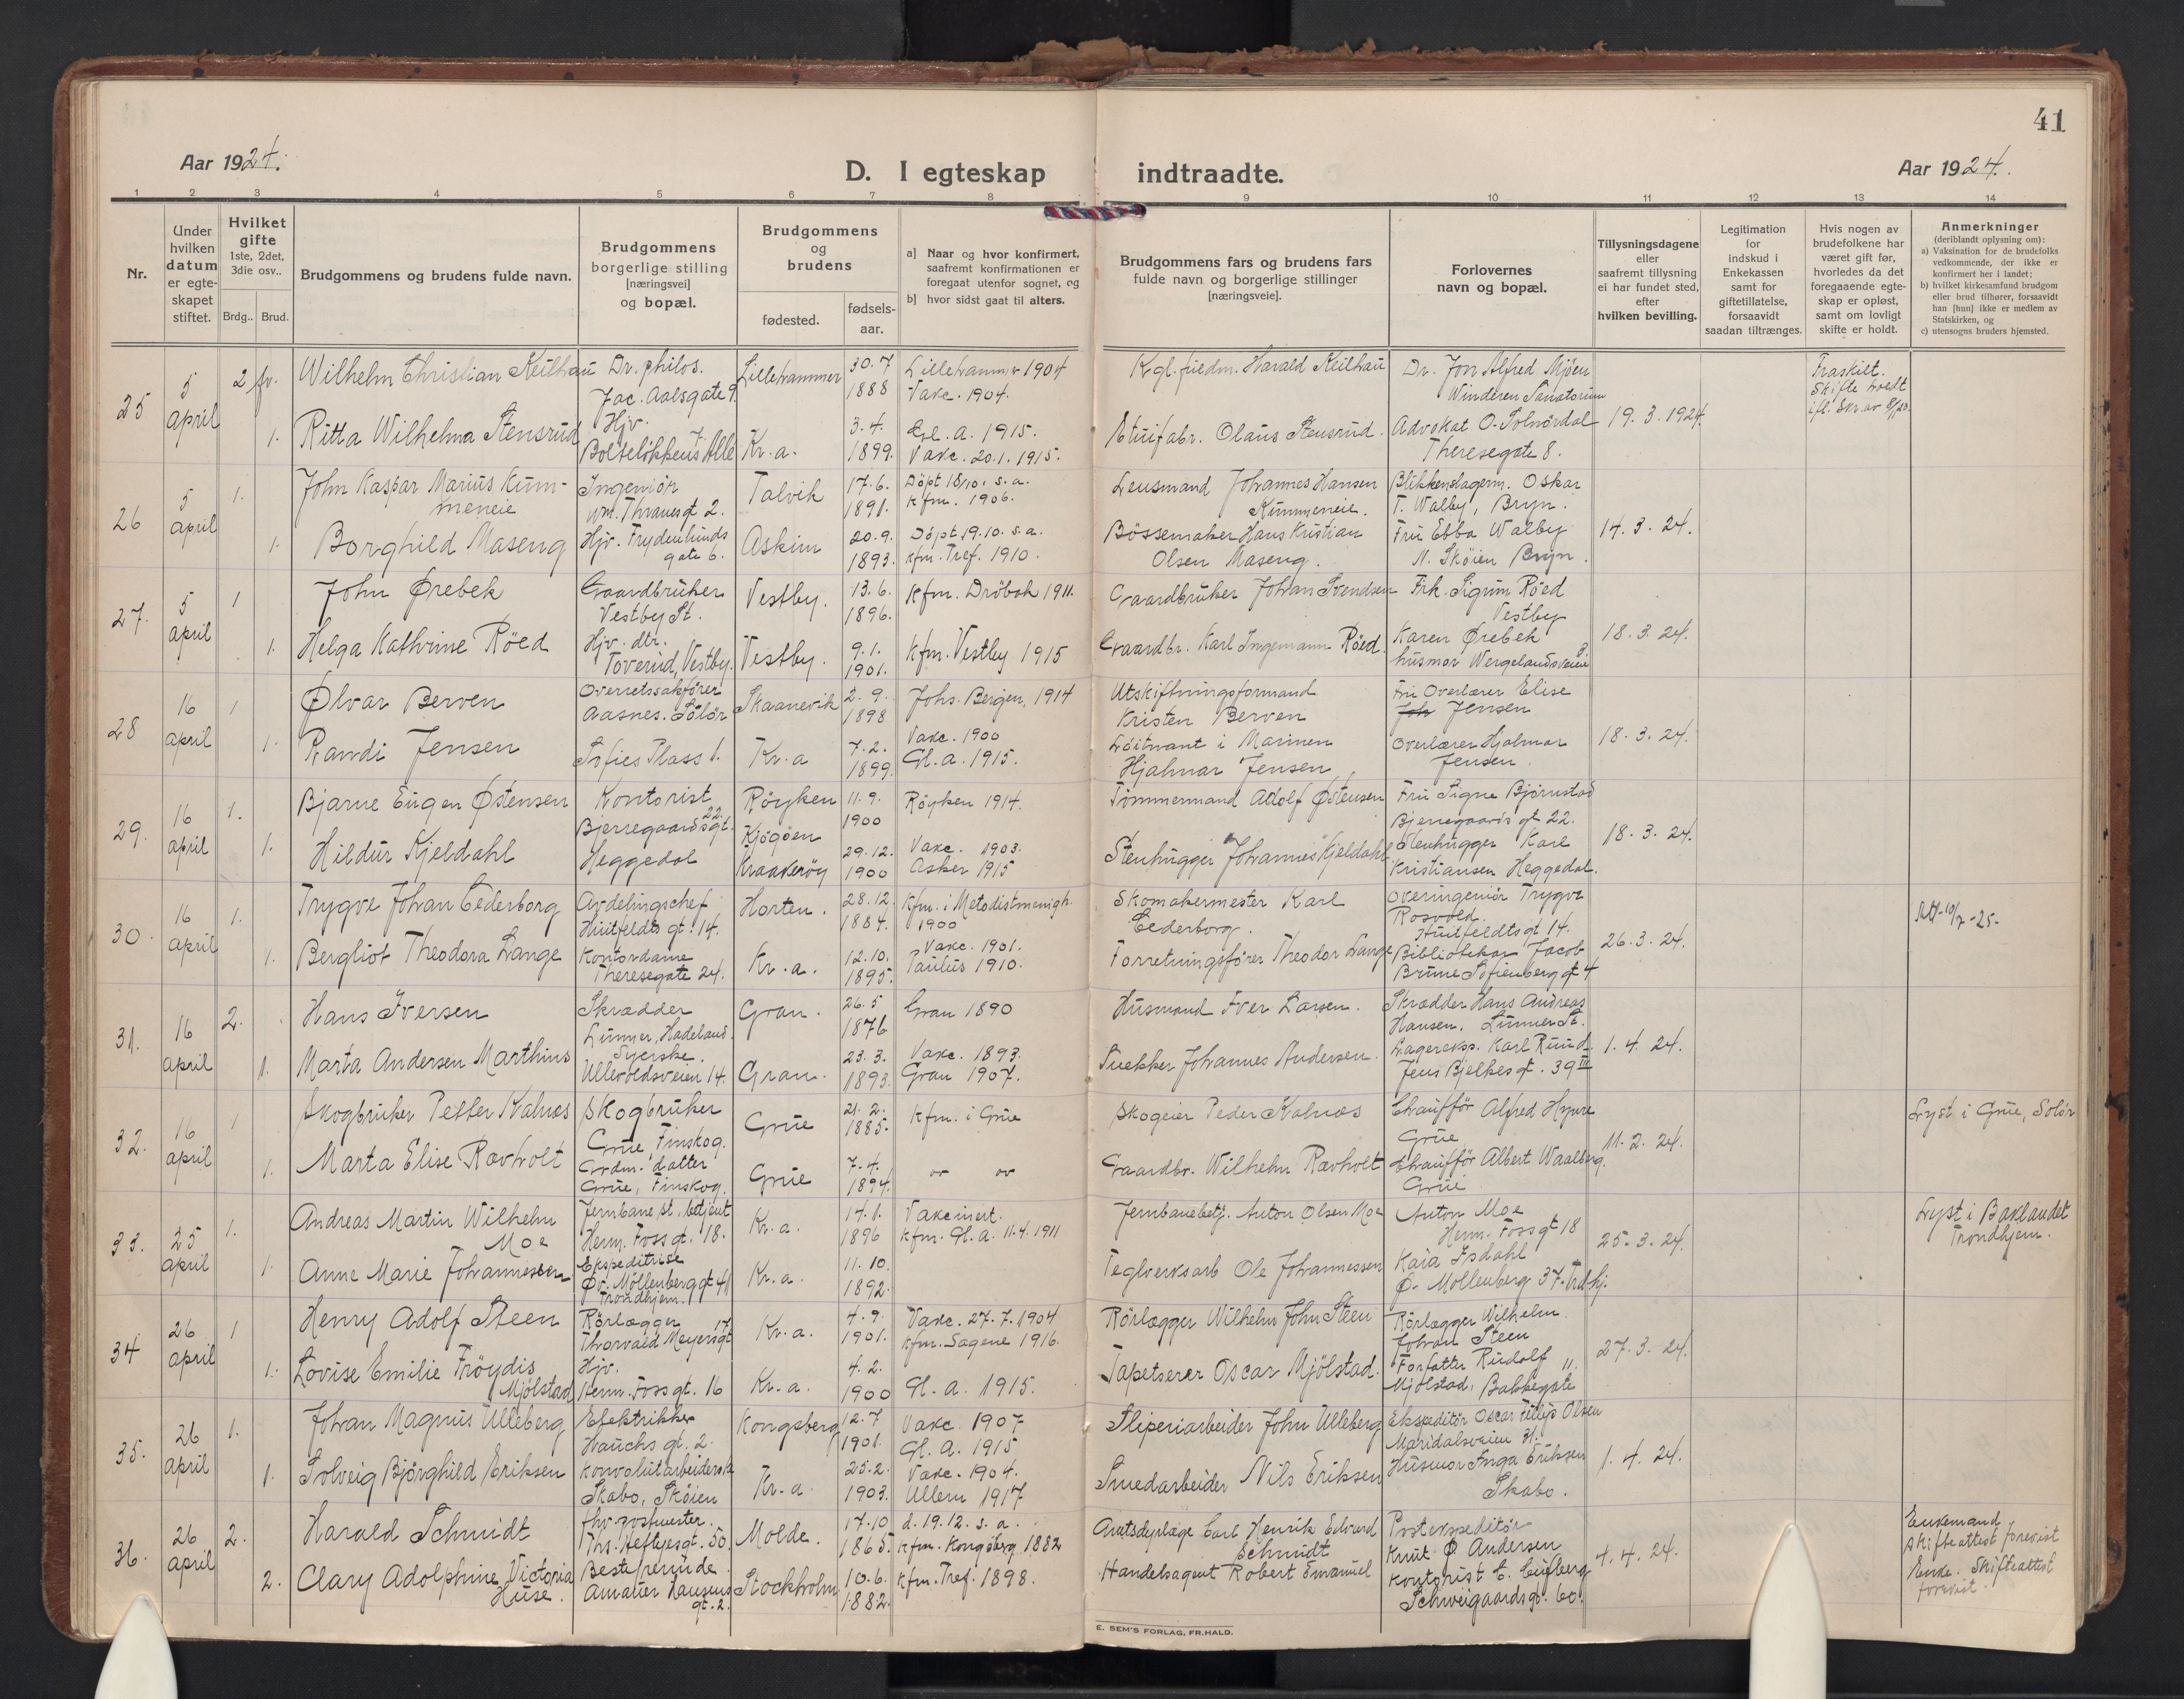 41
Aar 1924.
D. I egteskap indtraadte.
Aar 1924.
1 2 3 4 5 6 7 8 9 10 11 12 13 14
Nr.
Under hvilken datum er egteskapet stiftet.
Hvilket gifte 1ste, 2det, 3die osv..
Brdg.. Brud.
Brudgommens og brudens fulde navn.
Brudgommens borgerlige stilling [næringsvei] og bopæl.
Brudgommens og brudens
fødested.
fødsels-aar.
a] Naar og hvor konfirmert, saafremt konfirmationen er foregaat utenfor sognet, og
b] hvor sidst gaat til alters.
Brudgommens fars og brudens fars fulde navn og borgerlige stillinger [næringsveie].
Forlovernes navn og bopæl.
Tillysningsdagene eller saafremt tillysning ei har fundet sted, efter hvilken bevilling.
Legitimation for indskud i Enkekassen samt for giftetillatelse, forsaavidt saadan tiltrænges.
Hvis nogen av brudefolkene har været gift før, hvorledes da det foregaaende egteskap er opløst, samt om lovligt skifte er holdt.
Anmerkninger (deriblandt oplysning om):
a) Vaksination for de brudefolks vedkommende, der ikke er konfirmert her i landet;
b) hvilket kirkesamfund brudgom eller brud tilhører, forsaavidt han [hun] ikke er medlem av Statskirken, og
c) utensogns bruders hjemsted.
25 5 april 2 fr. Wilhelm Christian Keilhau Dr. philos. Jac. Aalsgate 9. Lillehammer 30.7 1888 Lillehammer 1904 Vakc. 1904. Kgl. fuldm. Harald Keilhau Dr. Jon Alfred Mjøen Winderen Sanatorium
Fraskilt. Skifte holdt
1. Ritta Wilhelma Stensrud Hjv. Bolteløkkens Alle 7. Kr.a. 3.4. 1899. Gl. a. 1915. Vakc. 20.1.1915. Etuifabr. Olaus Stensrud. Advokat O. Solnørdal Theresegate 8. 19.3.1924.
26 5 april 1. John Kaspar Marius Kummeneie Ingeniør Wm. Thranesgt 2. Talvik 17.6. 1891. Døpt 18/10. s.a. kfm. 1906. Lensmand Johannes Hansen Kummeneie. Blikkenslagerm. Oskar T. Walby, Bryn.
1. Borghild Maseng Hjv. Frydenlunds gate 6. Askim 20.9. 1893. Døpt 19.10. s.a. kfm. Tref. 1910. Bøssemaker Hans Kristian Olsen Maseng. Fru Ebba Walby N. Skøien Bryn. 14.3.24.
27. 5 april 1 John Ørebek Gaardbruker Vestby St. Vestby. 13.6. 1896. Kfm. Drøbak 1911. Gaardbruker Johan Svendsen Frk. Sigrun Røed Vestby
1. Helga Kathrine Røed Hjv. dtr. Toverud, Vestby. Vestby. 9.1. 1901. Kfm. Vestby 1915 Gaardbr. Karl Ingemann Røed. Karen Ørebek husmor Wergelandsveien 18.3.24.
28 16 april 1 Ølvar Berven Overretssakfører Aasnes. Solør Skaanevik 2.9. 1898 Johs. Bergen, 1914 Utskiftningsformand Kristen Berven Fru Overlærer Elise Jensen
1. Randi Jensen Sofies Plass 1. Kr.a 7.2. 1899. Vakc. 1900 Gl. a. 1915. Løitnant i Marinen Hjalmar Jensen Overlærer Hjalmar Jensen. 18.3.24.
29. 16 april 1. Bjarne Eugen Østensen Kontorist Bjerregaardsgt. 22. Røyken 11.9. 1900 Røyken 1914. Tømmermand Adolf Østensen Fru Signe Bjørnstad Bjerregaards gt 22.
1. Hildur Kjeldahl Heggedal Kjøgøen Kraakerøy 29.12. 1900 Vakc. 1903. Asker 1915 Stenhugger Johannes Kjeldahl. Stenhugger Karl Kristiansen Heggedal. 18.3.24.
30. 16 april 1. Trygve Johan Cederborg Avdelingschef Huitfeldts gt. 14. Horten. 28.12 1884. Kfm. i Metodistmenigh. 1900 Skomakermester Karl Cederborg. Overingeniør Trygve Rosvold. Huitfeldtsgt 14.
1. Bergliot Theodora Lange Kontordame Theresegate 24. Kr.a. 12.10. 1895. Vakc. 1901. Paulus 1910. Forretningsfører Theodor Lange Bibliotekar Jacob Brune Sofienberg gt 4 26.3.24.
31. 16 april 2. Hans Iversen Skrædder Lunner, Hadeland. Gran. 26.5 1876 Gran 1890 Husmand Iver Larsen. Skrædder Hans Andreas Hansen. Lunner St.
1. Marta Andersen Marthins Syerske. Ullevoldsveien 14. Gran. 23.3. 1893. Vakc. 1893. Gran 1907. Snekker Johannes Andersen. Lagereksp. Karl Ruud. Jens Bjelkesgt. 39 III 1.4.24.
32. 16 april 1 Skogbruker Petter Kalnæs Skogbruker Grue, Finskog. Grue 21.2. 1885. kfm. i Grue Skogeier Peder Kalnæs Chauffør Alfred Hyure Grue
Lyst i Grue, Solør
1. Marta Elise Ravholt Grdm. datter Grue, Finskog. Grue 7.4. 1894. Gaardbr. Wilhelm Ravholt Chauffør Albert Waalberg. Grue 11.2.24.
33. 25 april 1. Andreas Martin Wilhelm Moe Jernbane st. betjent Herm. Foss gt. 18. Kr.a. 14.1. 1896 Vakcinert. kfm. Gl.a. 11.4.1911 Jernbanebetj. Anton Olsen Moe Anton Moe Herm. Fossgt 18
Lyst i Baklandet Trondhjem.
1. Anne Marie Johannessen Ekspeditrise Ør. Møllenberggt 41 Trondhjem. Kr.a. 11.10. 1892. Teglverksarb Ole Johannessen Kaia Isdahl Ø. Møllenberg 37. Trdhj. 25.3.24.
34 26 april 1 Henry Adolf Steen Rørlægger Thorvald Meyersgt 17. Kr.a. 4.9. 1901. Vakc. 27.7.1904 kfm. Sagene 1916. Rørlægger Wilhelm John Steen Rørlægger Wilhelm Johan Steen
1. Lovise Emilie Frøydis Mjølstad Hjv. Herm. Fossgt. 16 Kr.a. 4.2. 1900 Gl. a. 1915. Tapetserer Oscar Mjølstad. Forfatter Rudolf Mjølstad, Bakkegate 11. 27.3.24.
35. 26 april 1. Johan Magnus Ulleberg Elektriker Hauchs gt. 2. Kongsberg 12.7 1901. Vakc. 1907 Gl. a. 1915 Sliperiarbeider John Ulleberg Ekspeditør Oscar Fillip Olsen Maridalsveien 31.
1. Solveig Bjørghild Eriksen Konvolutarbeiderske Skabo, Skøien Kr.a. 25.2. 1903. Vakc. 1904. Ullern 1917 Smedarbeider Nils Eriksen Husmor Inga Eriksen Skabo. 1.4.24.
36. 26 april 2. Harald Schmidt fhv. postmester. Ths. Heftyesgt. 50. Molde. 17.10 1865. d. 19.12. s.a. kfm. Kongsberg 1882 Carl Henrik Edvard Schmidt Postekspeditør Knut Ø Andersen
Enkemand Skifteattest forevist
2. Clary Adolphine Victoria Huse. Bestyrerinde. Amalier Hansens gt. 2. Stockholm 10.6. 1882. Kfm. Tref. 1898. Handelsagent Robert Emanuel Kontorist Schweigaardsgt. 60. 4.4.24.
Enke. Skifteattest forevist.
E. SEM'S FORLAG, FR.HALD.